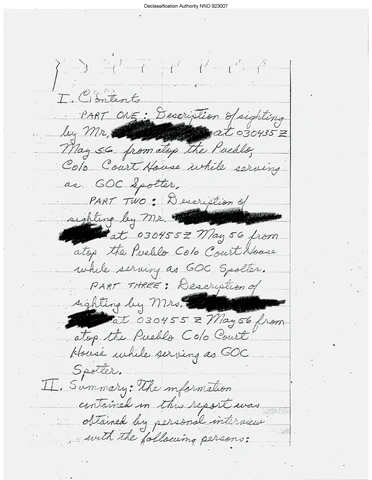 Declassification Authority NND 923007
I. Contents
PART ONE: Description of sighting
by Mr. at 030435Z
May 56 from atop the Pueblo,
Colo Court House while serving
as GOC Spotter.
PART TWO: Description of
sighting by Mr.
at 030455Z May 56 from
atop the Pueblo Colo Court House
while serving as GOC Spotter.
PART THREE: Description of
sighting by Mrs.
at 030455Z May 56 from
atop the Pueblo Colo Court
House while serving as GOC
Spotter.
II. Summary: The information
contained in this report was
obtained by personal interview
with the following persons: